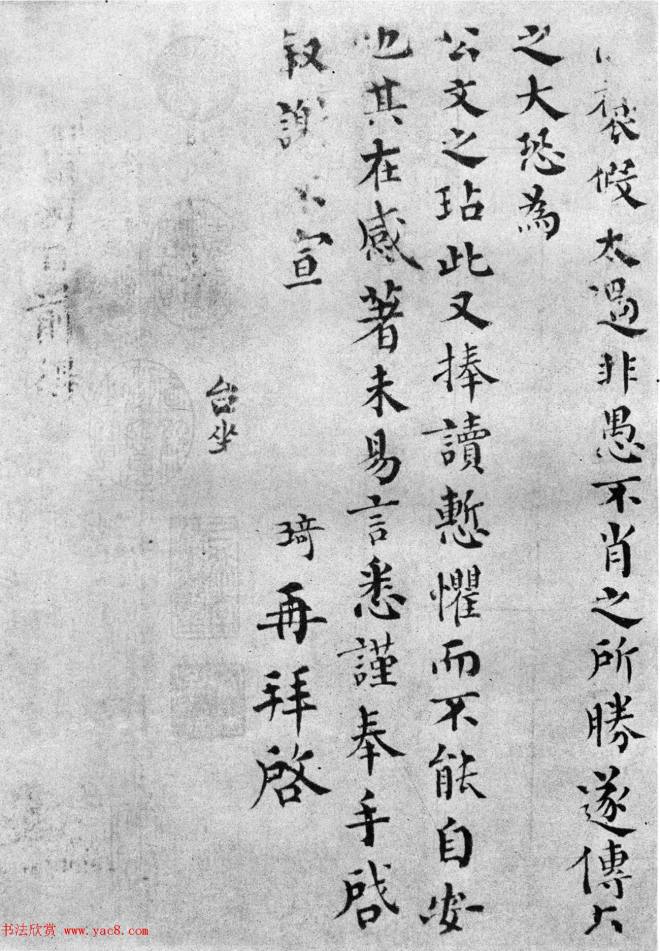 褒假太過非愚不肖之所勝遂傳大
之大恐為
公文之玷此又捧讀慙懼而不能自安
也其在感著未易言悉謹奉手啓
叙謝不宣
琦再拜啓
台坐
前得
书法欣赏 www.yac8.com